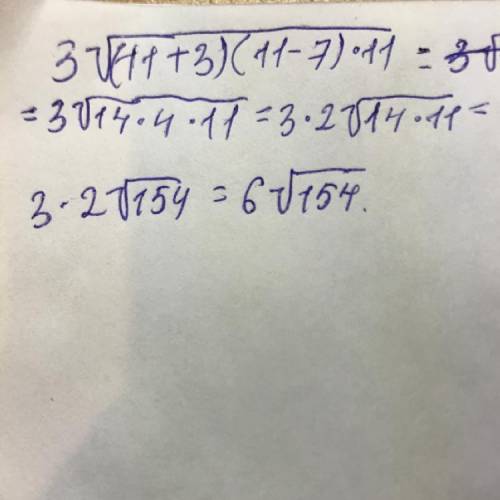 3√(11+3)(11-7)·11 = 3√
=3√14·4·11 = 3·2√14·11 =
3·2√154 = 6√154.